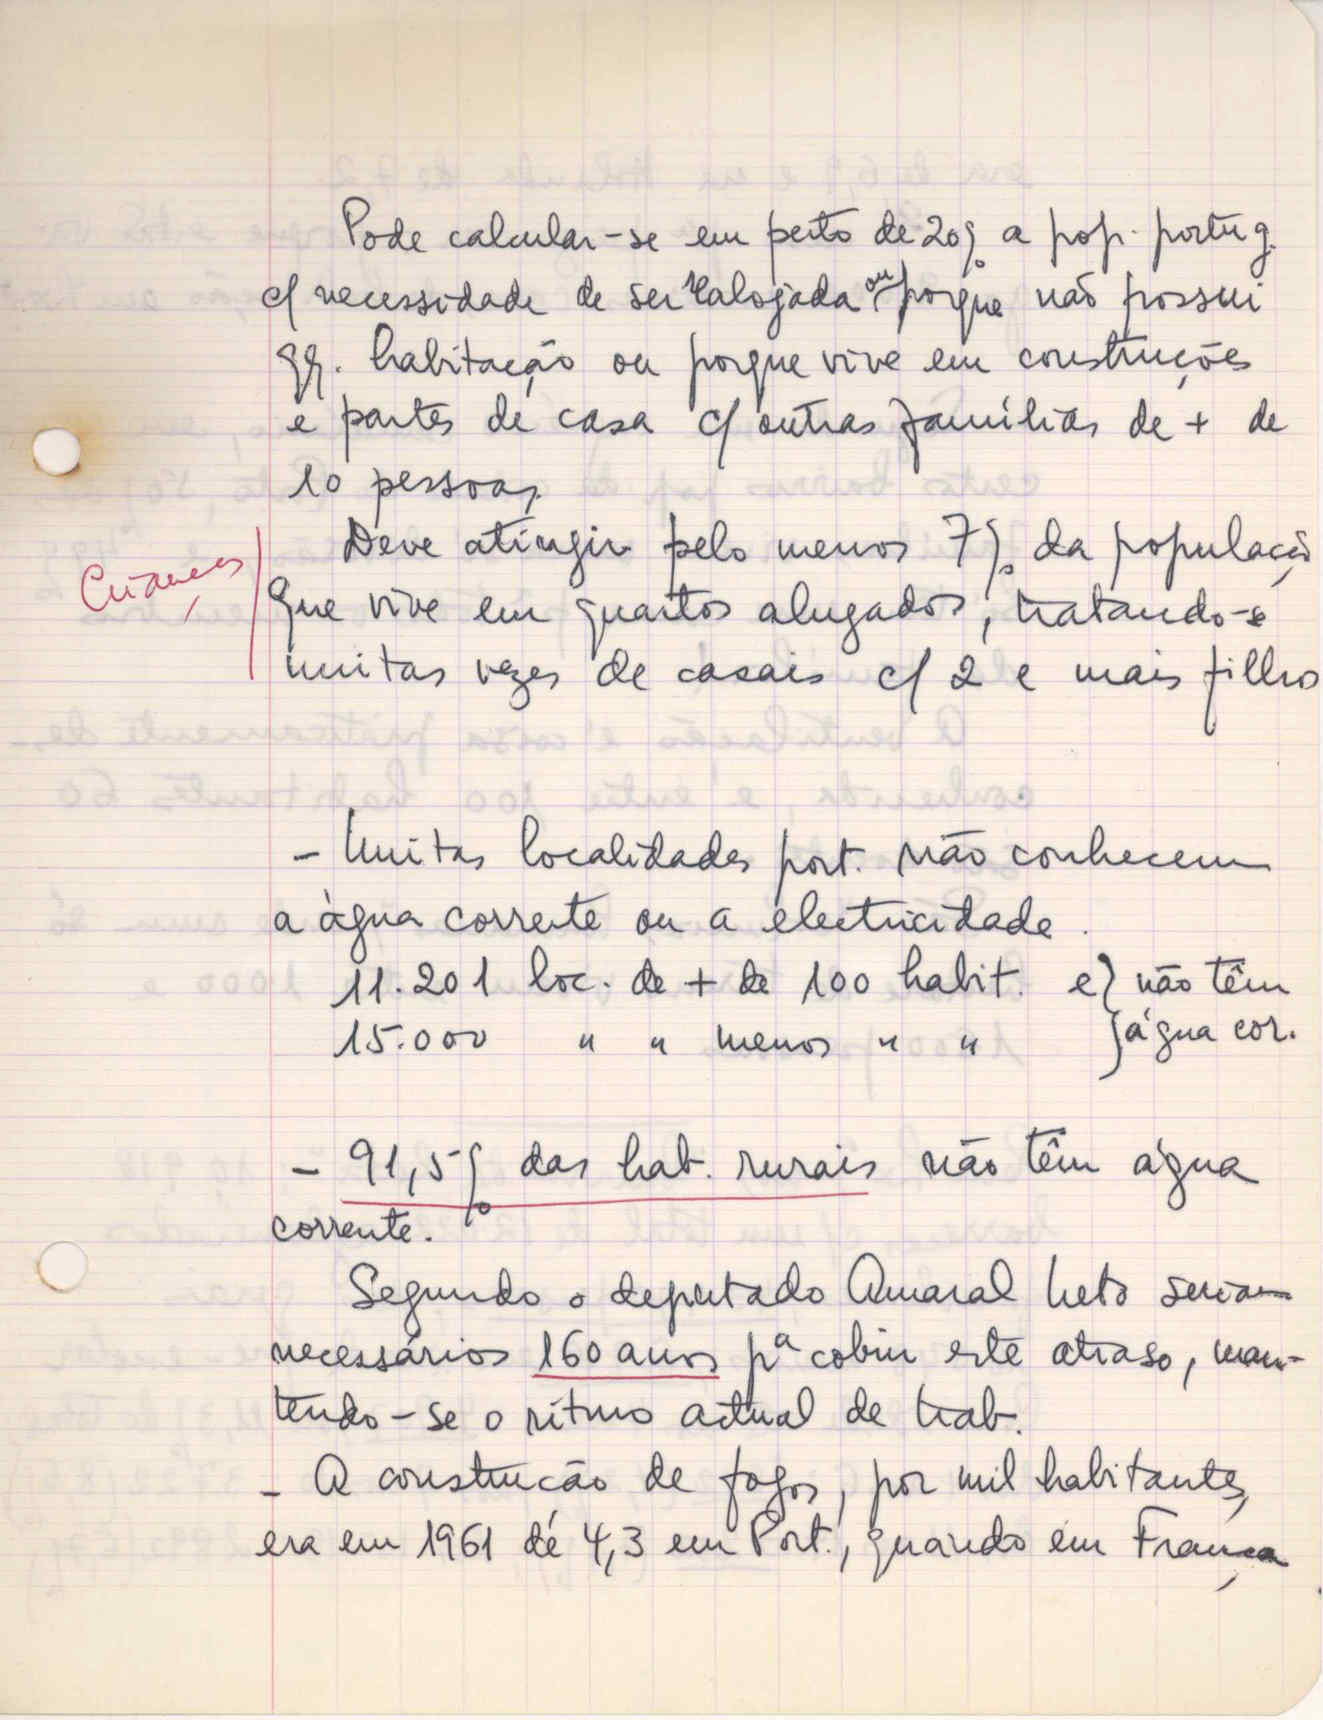 Pode calcular-se em perto de 20% a pop. portug.
c/ necessidade de ser realojada ou porque não possui
qq. habitação ou porque vive em construções
e partes de casa c/ outras famílias de + de
10 pessoas.
Deve atingir pelo menos 7% da população
Crianças
que vive em quartos alugados, tratando-se
muitas vezes de casais c/ 2 e mais filhos
- Muitas localidades port. não conhecem
a água corrente ou a electricidade.
11.201 loc. de + de 100 habit. e } não têm
15.000 " " menos " " } água cor.
- 91,5% das hab. rurais não têm água
corrente.
Segundo o deputado Amaral Neto seriam
necessários 160 anos pª cobrir este atraso, man-
tendo-se o ritmo actual de trab.
- A construcão de fogos, por mil habitantes,
era em 1961 de 4,3 em Port., quando em França